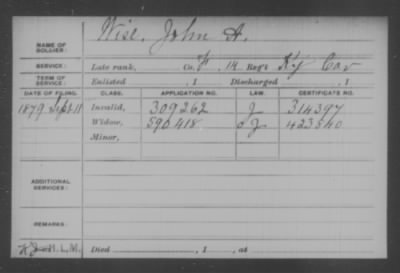 Wise, John A.
NAME OF SOLDIER:
SERVICE: Late rank, Co. F, 14 Reg't Ky Cav
TERM OF SERVICE: Enlisted , 1 Discharged , 1
DATE OF FILING. CLASS. APPLICATION NO. LAW. CERTIFICATE NO.
1879 Sept 11 Invalid, 309262 J 314397
Widow, 590418 J 423540
Minor,
ADDITIONAL SERVICES:
REMARKS:
H.L.M. Died , 1 , at